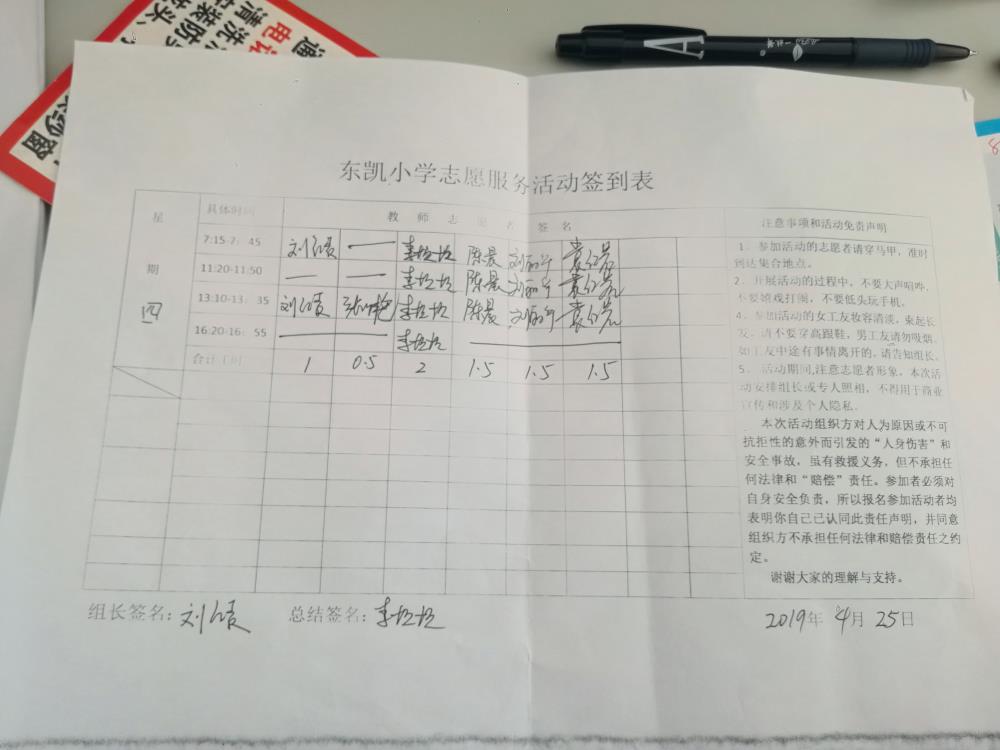 东凯小学志愿服务活动签到表
星期四
具体时间 教师志愿者签名
7:15-7：45 刘 — 李 陈晨 刘 袁
11:20-11:50 — — 李 陈晨 刘 袁
13:10-13：35 刘 张 李 陈晨 刘 袁
16:20-16：55 — 李 —
合计 1 0.5 2 1.5 1.5 1.5
注意事项和活动免责声明
1．参加活动的志愿者请穿马甲，准时
到达集合地点。
2．开展活动的过程中，不要大声喧哗，
不要嬉戏打闹，不要低头玩手机。
4．参加活动的女工友妆容清淡，束起长
发，请不要穿高跟鞋，男工友请勿吸烟。
如工友中途有事情离开的，请告知组长。
5．活动期间,注意志愿者形象，本次活
动安排组长或专人照相，不得用于商业
宣传和涉及个人隐私。
本次活动组织方对人为原因或不可
抗拒性的意外而引发的“人身伤害”和
安全事故，虽有救援义务，但不承担任
何法律和“赔偿”责任。参加者必须对
自身安全负责，所以报名参加活动者均
表明你自己已认同此责任声明，并同意
组织方不承担任何法律和赔偿责任之约
定。
谢谢大家的理解与支持。
组长签名：刘 总结签名：李 2019年 4月 25日